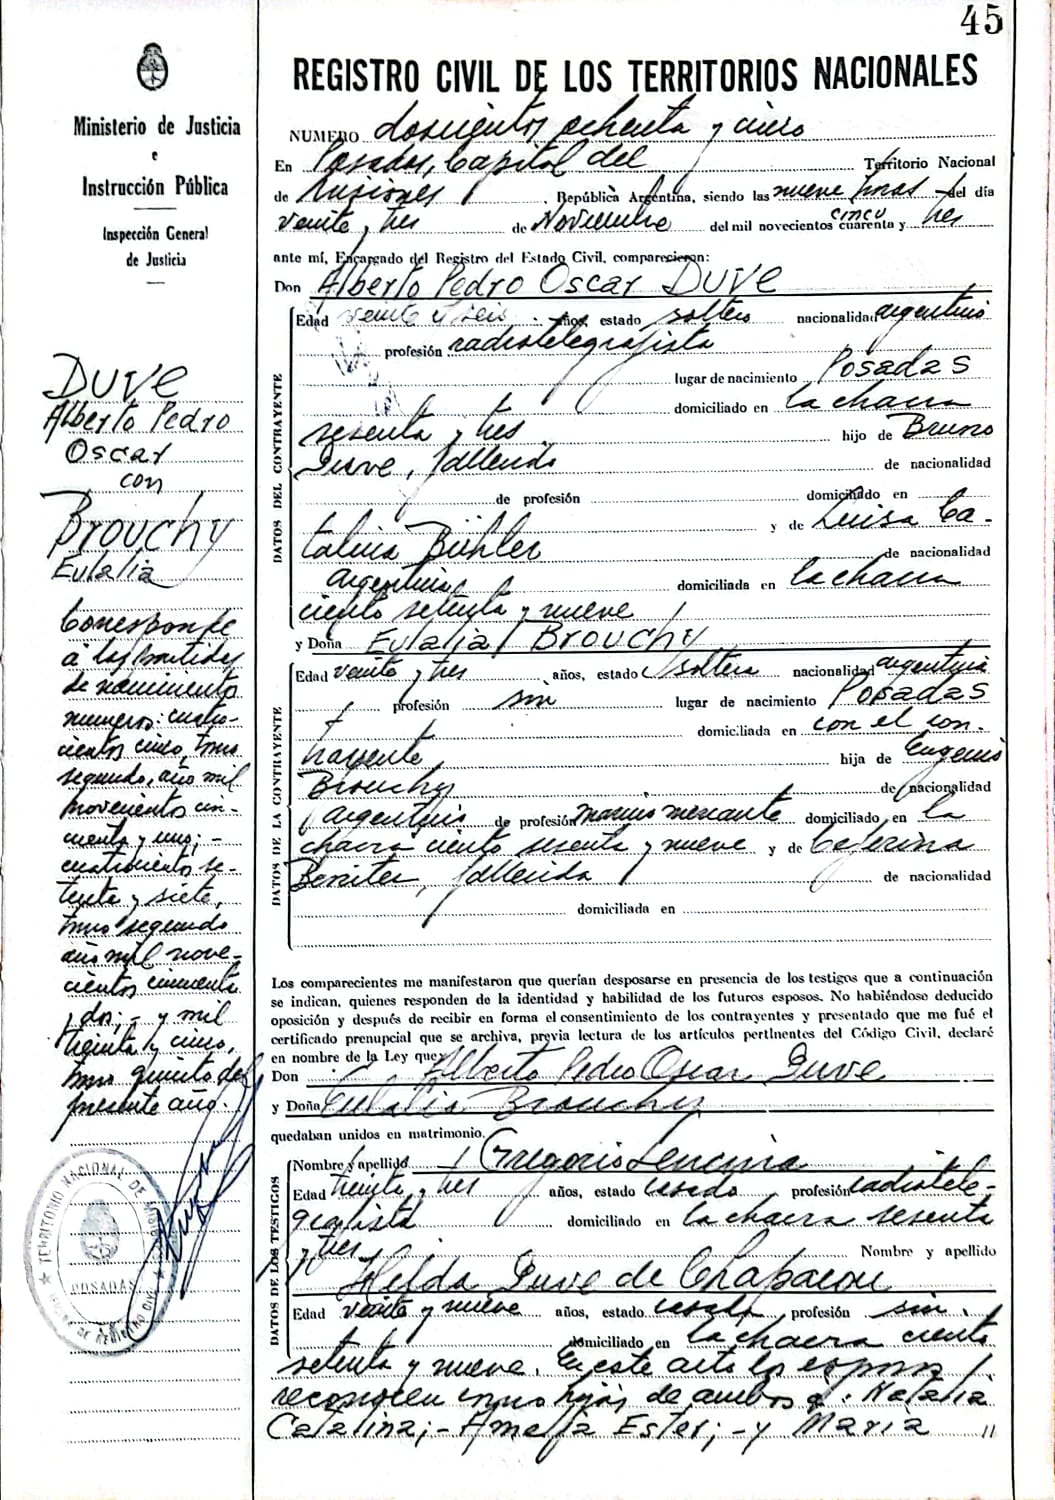 45
Ministerio de Justicia
e
Instrucción Pública
Inspección General
de Justicia
DUVE
Alberto Pedro
Oscar
con
Brouchy
Eulalia
Corresponde
a las partidas
de nacimiento
numeros: cuatro-
cientos cinco, tomo
segundo, año mil
novecientos cin-
cuenta y uno; -
cuatrocientos se-
tenta y siete,
tomo segundo
año mil nove-
cientos cincuenta
y dos; - y mil
treinta y cinco,
tomo quinto del
presente año.
TERRITORIO NACIONAL DE MISIONES
POSADAS
REGISTRO CIVIL DE LOS TERRITORIOS NACIONALES
NUMERO doscientos ochenta y cinco
En Posadas, Capital del Territorio Nacional
de Misiones, República Argentina, siendo las nueve horas del día
veinte y tres de Noviembre del mil novecientos cuarenta y cinco tres
ante mí, Encargado del Registro del Estado Civil, comparecieron:
Don Alberto Pedro Oscar DUVE
DATOS DEL CONTRAYENTE
Edad veinte y seis años, estado soltero nacionalidad argentino
profesión radiotelegrafista
lugar de nacimiento Posadas
domiciliado en la chacra
sesenta y tres hijo de Bruno
Duve, fallecido de nacionalidad
de profesión domiciliado en
y de Luisa Ca-
talina Bühler de nacionalidad
argentina domiciliada en la chacra
ciento setenta y nueve
y Doña Eulalia Brouchy
DATOS DE LA CONTRAYENTE
Edad veinte y tres años, estado soltera nacionalidad argentina
profesión sin lugar de nacimiento Posadas
domiciliada en con el con-
trayente hija de Eugenio
Brouchy de nacionalidad
argentino de profesión marino mercante domiciliado en la
chacra ciento sesenta y nueve y de Ceferina
Benitez, fallecida de nacionalidad
domiciliada en
Los comparecientes me manifestaron que querían desposarse en presencia de los testigos que a continuación
se indican, quienes responden de la identidad y habilidad de los futuros esposos. No habiéndose deducido
oposición y después de recibir en forma el consentimiento de los contrayentes y presentado que me fué el
certificado prenupcial que se archiva, previa lectura de los artículos pertinentes del Código Civil, declaré
en nombre de la Ley que
Don Alberto Pedro Oscar Duve
y Doña Eulalia Brouchy
quedaban unidos en matrimonio.
DATOS DE LOS TESTIGOS
Nombre y apellido Gregorio Lencina
Edad treinta y tres años, estado casado profesión radiotele-
grafista domiciliado en la chacra sesenta
y tres Nombre y apellido
Hilda Duve de
Edad veinte y nueve años, estado casada profesión sin
domiciliado en la chacra ciento
setenta y nueve. En este acto los esposos
reconocen como hijos de ambos a: Natalia
Catalina; - Amelia Ester; - y Maria "